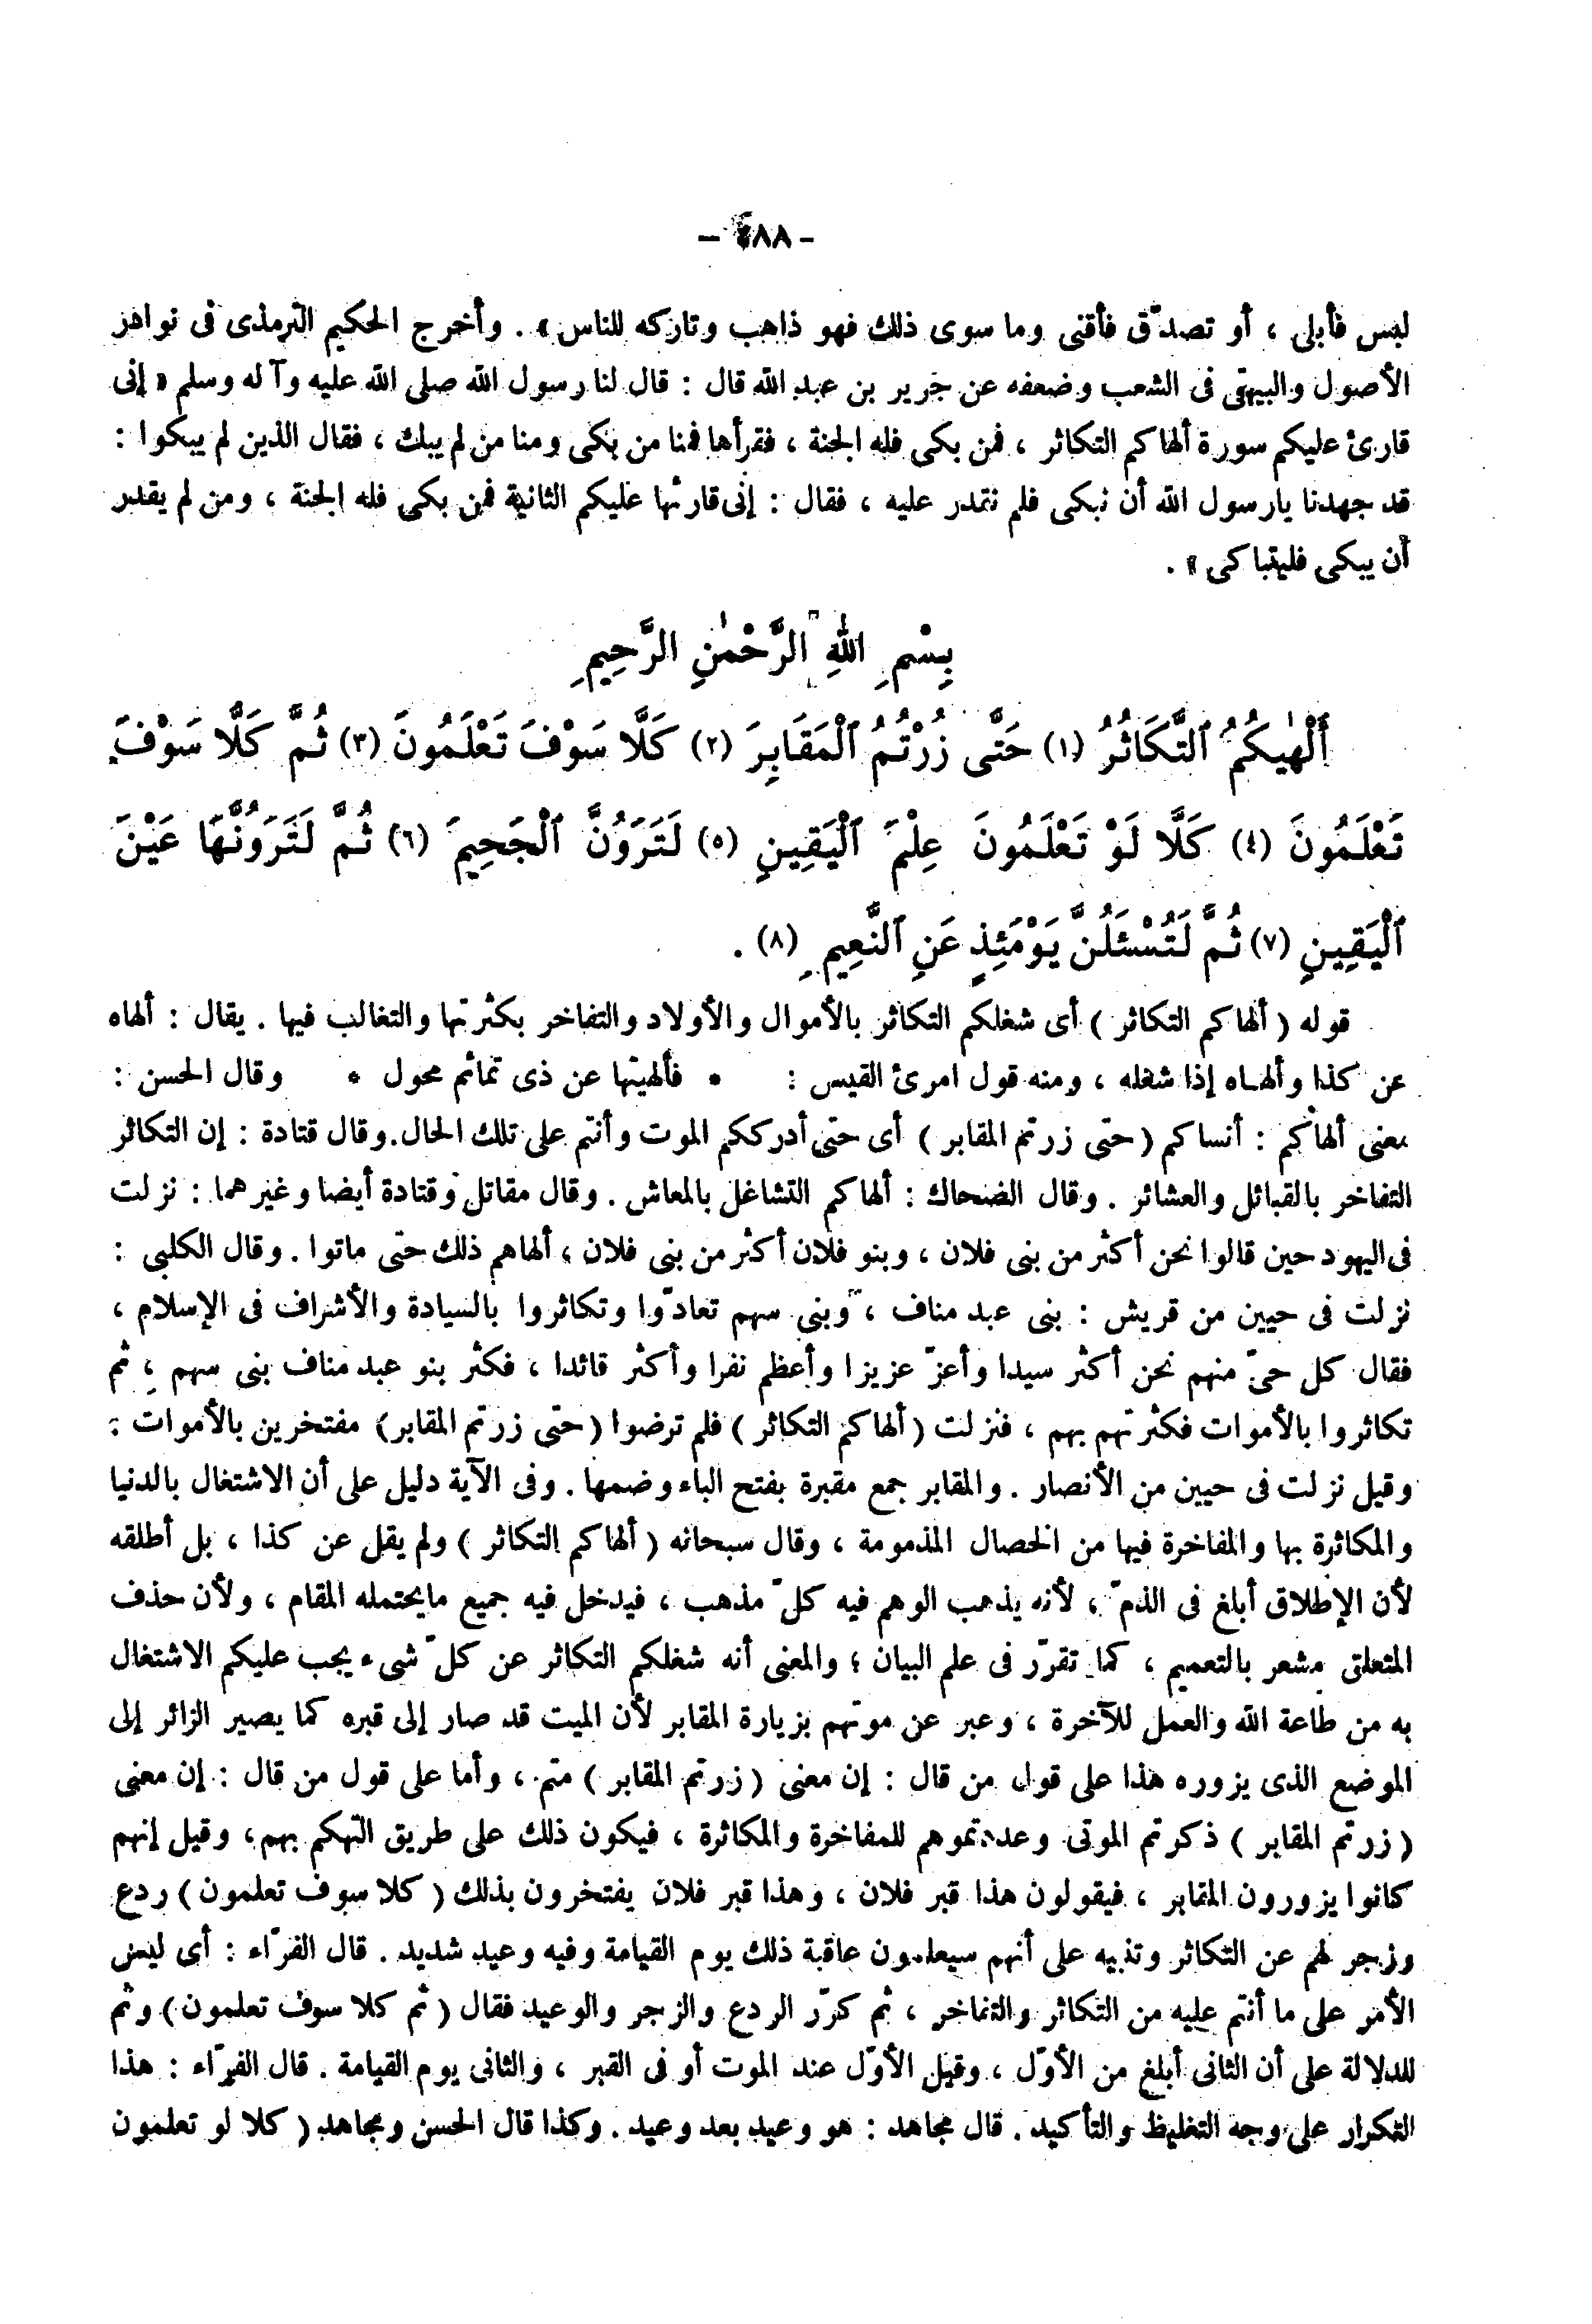 - ٤٨٨ -
لبس فأبلى ، أو تصدّق فأقنى وما سوى ذلك فهو ذاهب وتاركه للناس » . وأخرج الحكيم الترمذى فى نوادر
الأصول والبيهقى فى الشعب وضعفه عن جرير بن عبد الله قال : قال لنا رسول الله صلى الله عليه وآله وسلم « إنى
قارئ عليكم سورة ألهاكم التكاثر ، فمن بكى فله الجنة ، فقرأها فمنا من بكى ومنا من لم يبك ، فقال الذين لم يبكوا :
قد جهدنا يارسول الله أن نبكى فلم نقدر عليه ، فقال : إنى قارئها عليكم الثانية فمن بكى فله الجنة ، ومن لم يقدر
أن يبكى فليتباكى » .
بِسْمِ اللهِ الرَّحْمٰنِ الرَّحِيمِ
أَلْهٰيكُمُ ٱلتَّكَاثُرُ (١) حَتَّى زُرْتُمُ ٱلْمَقَابِرَ (٢) كَلَّا سَوْفَ تَعْلَمُونَ (٣) ثُمَّ كَلَّا سَوْفَ
تَعْلَمُونَ (٤) كَلَّا لَوْ تَعْلَمُونَ عِلْمَ ٱلْيَقِينِ (٥) لَتَرَوُنَّ ٱلْجَحِيمَ (٦) ثُمَّ لَتَرَوُنَّهَا عَيْنَ
ٱلْيَقِينِ (٧) ثُمَّ لَتُسْئَلُنَّ يَوْمَئِذٍ عَنِ ٱلنَّعِيمِ (٨) .
قوله ( ألهاكم التكاثر ) أى شغلكم التكاثر بالأموال والأولاد والتفاخر بكثرتها والتغالب فيها . يقال : ألهاه
عن كذا وألهاه إذا شغله ، ومنه قول امرئ القيس : * فألهيتها عن ذى تمائم محول * وقال الحسن :
معنى ألهاكم : أنساكم ( حتى زرتم المقابر ) أى حتى أدرككم الموت وأنتم على تلك الحال . وقال قتادة : إن التكاثر
التفاخر بالقبائل والعشائر . وقال الضحاك : ألهاكم التشاغل بالمعاش . وقال مقاتل وقتادة أيضا وغيرهما : نزلت
فى اليهود حين قالوا نحن أكثر من بنى فلان ، وبنو فلان أكثر من بنى فلان ، ألهاهم ذلك حتى ماتوا . وقال الكلبى :
نزلت فى حيين من قريش : بنى عبد مناف ، وبنى سهم تعادّوا وتكاثروا بالسيادة والأشراف فى الإسلام ،
فقال كل حىّ منهم نحن أكثر سيدا وأعزّ عزيزا وأعظم نفرا وأكثر قائدا ، فكثر بنو عبد مناف بنى سهم ، ثم
تكاثروا بالأموات فكثرتهم بهم ، فنزلت ( ألهاكم التكاثر ) فلم ترضوا ( حتى زرتم المقابر ) مفتخرين بالأموات :
وقيل نزلت فى حيين من الأنصار . والمقابر جمع مقبرة بفتح الباء وضمها . وفى الآية دليل على أن الاشتغال بالدنيا
والمكاثرة بها والمفاخرة فيها من الخصال المذمومة ، وقال سبحانه ( ألهاكم التكاثر ) ولم يقل عن كذا ، بل أطلقه
لأن الإطلاق أبلغ فى الذمّ ، لأنه يذهب الوهم فيه كلّ مذهب ، فيدخل فيه جميع مايحتمله المقام ، ولأن حذف
المتعلق مشعر بالتعميم ، كما تقرّر فى علم البيان ؛ والمعنى أنه شغلكم التكاثر عن كلّ شىء يجب عليكم الاشتغال
به من طاعة الله والعمل للآخرة ، وعبر عن موتهم بزيارة المقابر لأن الميت قد صار إلى قبره كما يصير الزائر إلى
الموضع الذى يزوره هذا على قول من قال : إن معنى ( زرتم المقابر ) متم ، وأما على قول من قال : إن معنى
( زرتم المقابر ) ذكرتم الموتى وعددتموهم للمفاخرة والمكاثرة ، فيكون ذلك على طريق التهكم بهم ، وقيل إنهم
كانوا يزورون المقابر ، فيقولون هذا قبر فلان ، وهذا قبر فلان يفتخرون بذلك ( كلا سوف تعلمون ) ردع
وزجر لهم عن التكاثر وتنبيه على أنهم سيعلمون عاقبة ذلك يوم القيامة وفيه وعيد شديد . قال الفرّاء : أى ليس
الأمر على ما أنتم عليه من التكاثر والتفاخر ، ثم كرّر الردع والزجر والوعيد فقال ( ثم كلا سوف تعلمون ) وثم
للدلالة على أن الثانى أبلغ من الأوّل ، وقيل الأوّل عند الموت أو فى القبر ، والثانى يوم القيامة . قال الفرّاء : هذا
التكرار على وجه التغليظ والتأكيد . قال مجاهد : هو وعيد بعد وعيد . وكذا قال الحسن ومجاهد ( كلا لو تعلمون